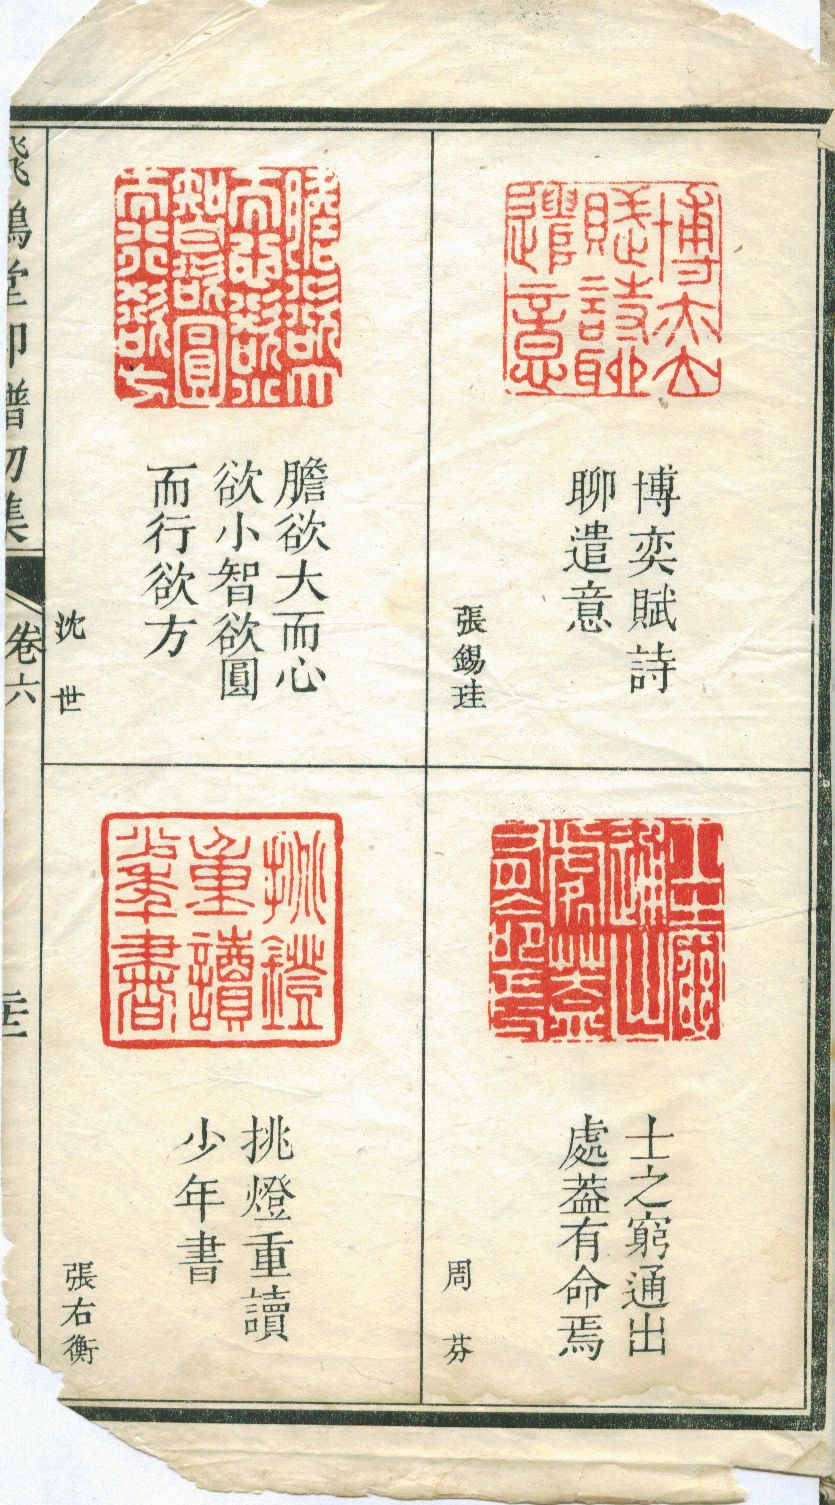 博奕賦詩
聊遣意
張錫珪
士之窮通出
處葢有命焉
周芬
膽欲大而心
欲小智欲圓
而行欲方
沈世
挑燈重讀
少年書
張右衡
飛鴻堂印譜初集
卷六
二十二